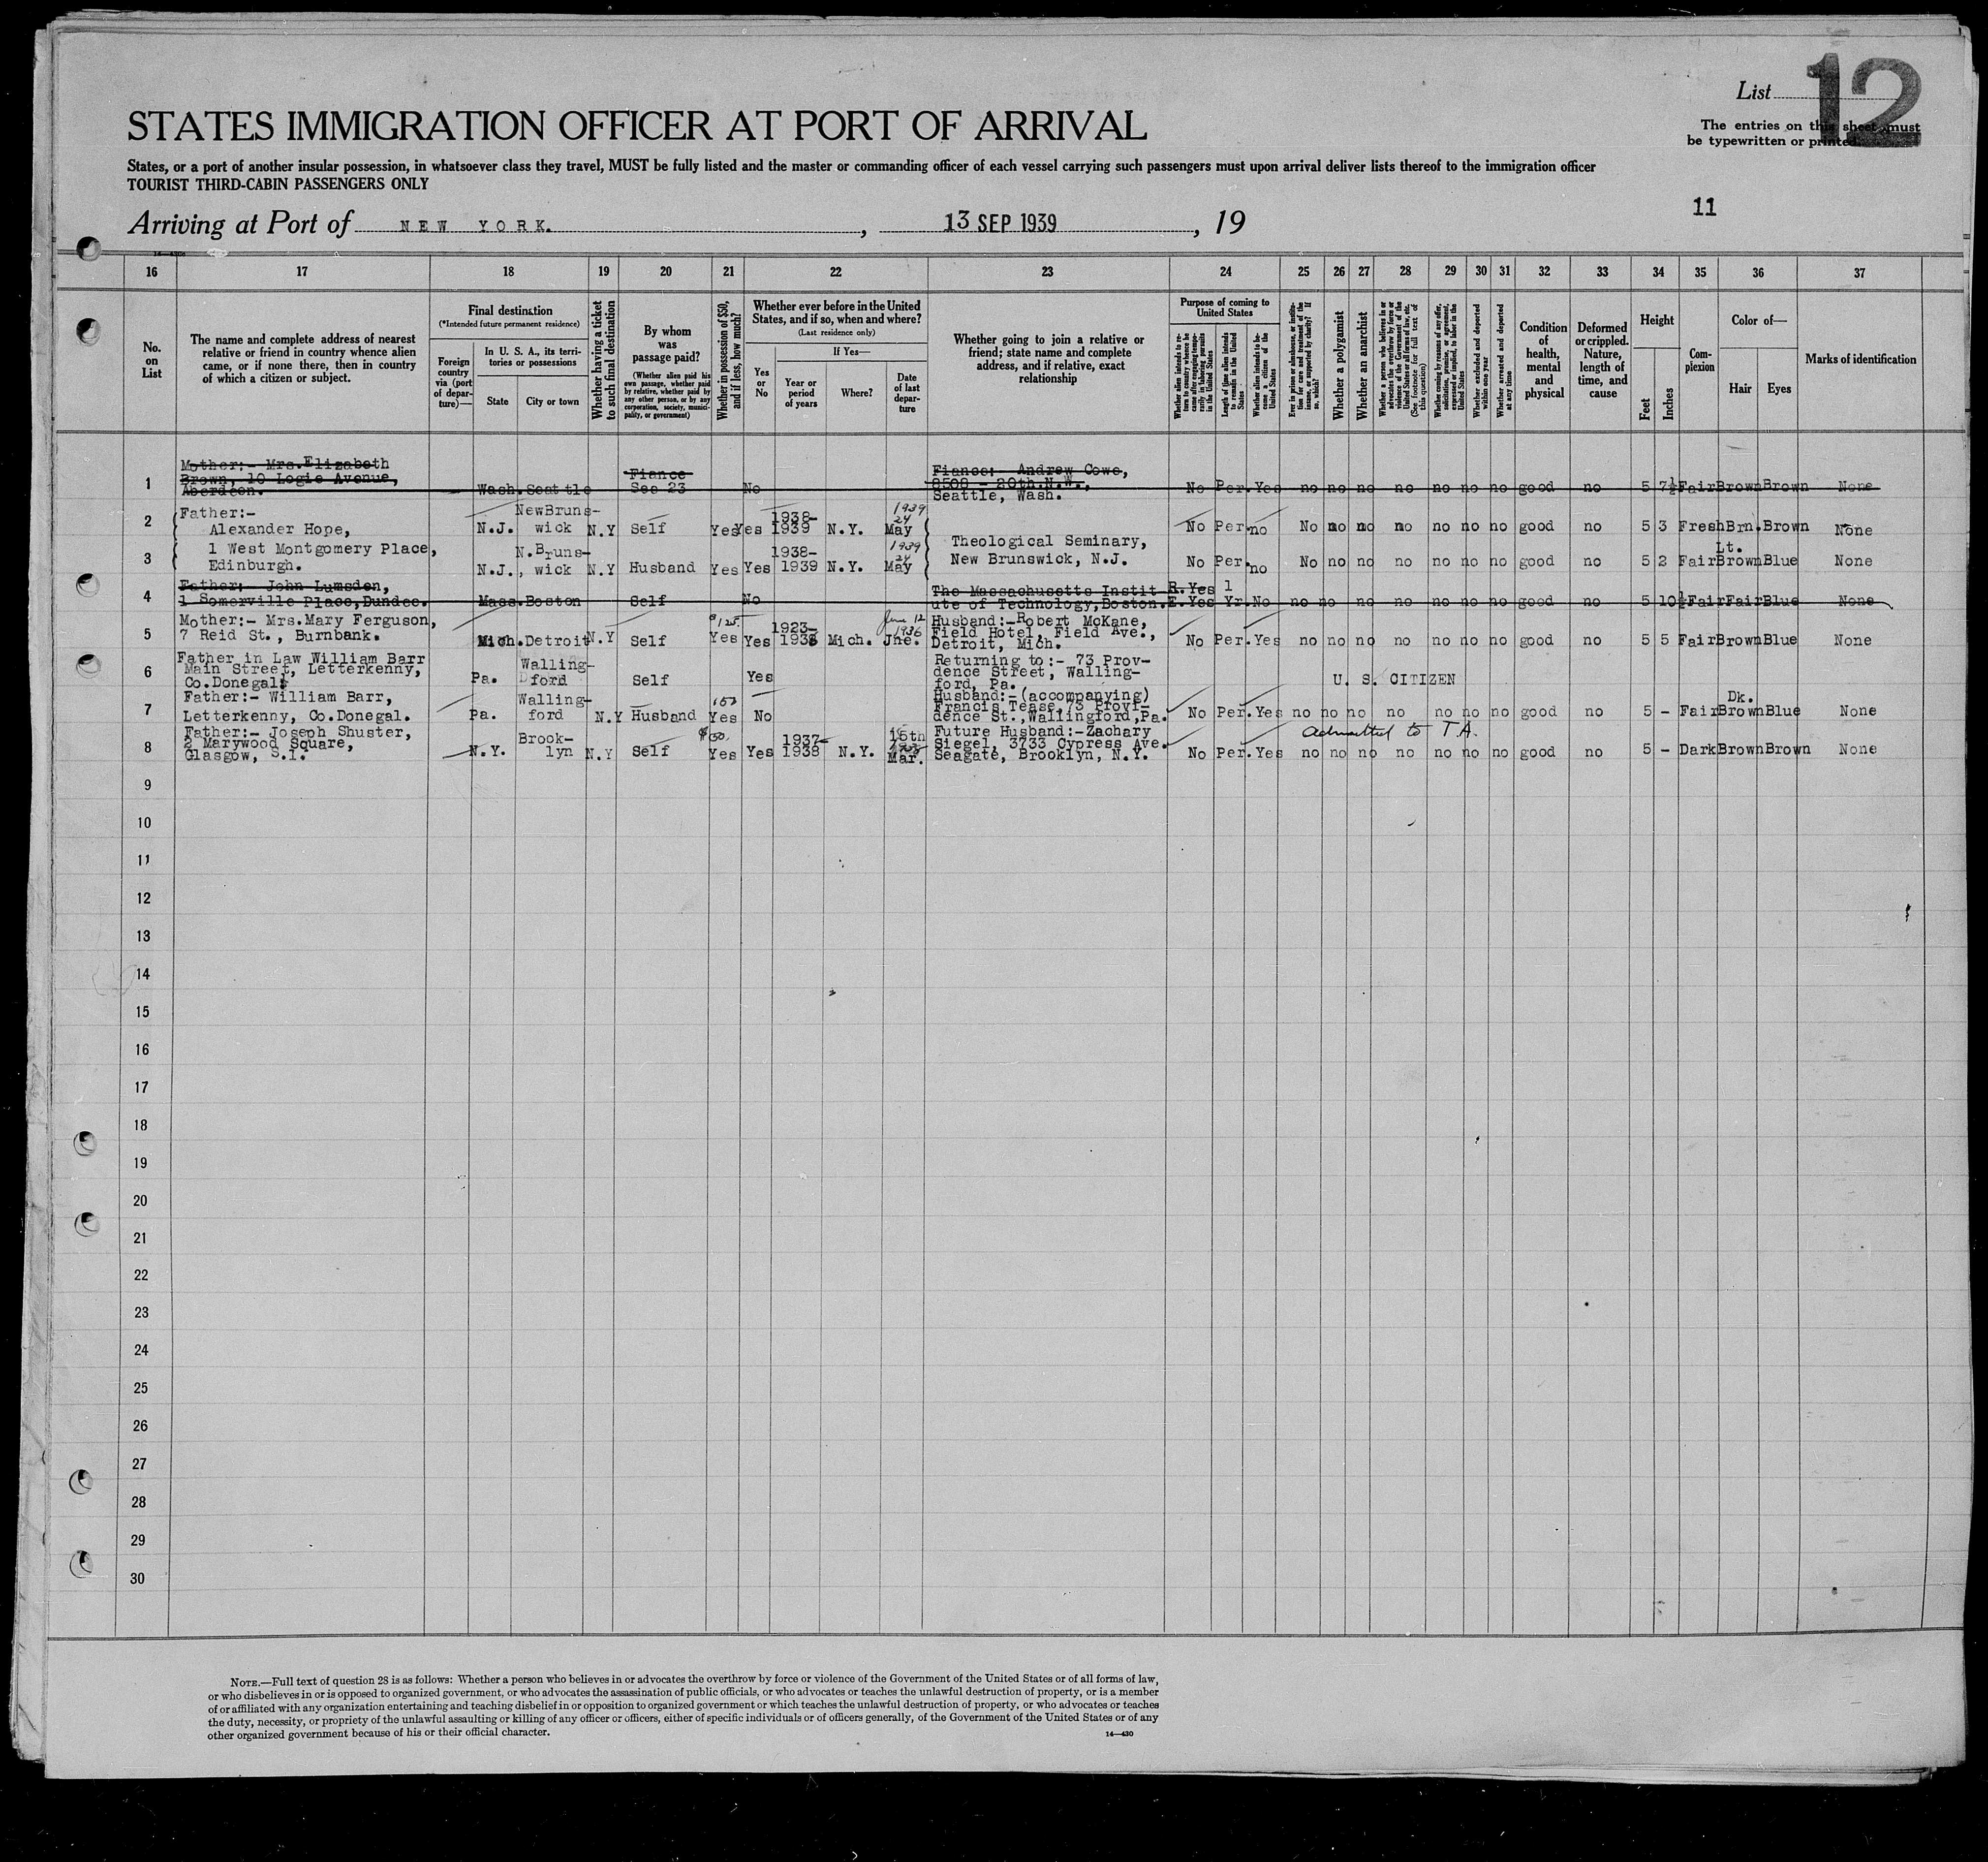 List 12
STATES IMMIGRATION OFFICER AT PORT OF ARRIVAL
The entries on this sheet must
be typewritten or printed.
States, or a port of another insular possession, in whatsoever class they travel, MUST be fully listed and the master or commanding officer of each vessel carrying such passengers must upon arrival deliver lists thereof to the immigration officer
TOURIST THIRD-CABIN PASSENGERS ONLY
11
Arriving at Port of NEW YORK. , 13 SEP 1939 , 19
16 17 18 19 20 21 22 23 24 25 26 27 28 29 30 31 32 33 34 35 36 37
No. on List
The name and complete address of nearest
relative or friend in country whence alien
came, or if none there, then in country
of which a citizen or subject.
Final destination
(*Intended future permanent residence)
Foreign country via (port of departure)—
In U. S. A., its territories or possessions
State
City or town
Whether having a ticket to such final destination
By whom was passage paid?
(Whether alien paid his own passage, whether paid by relative, whether paid by any other person, or by any corporation, society, municipality, or government)
Whether in possession of $50, and if less, how much?
Whether ever before in the United States, and if so, when and where?
(Last residence only)
Yes or No
If Yes—
Year or period of years
Where?
Date of last departure
Whether going to join a relative or
friend; state name and complete
address, and if relative, exact
relationship
Purpose of coming to United States
Whether alien intends to return to country whence he came after engaging temporarily in laboring pursuits in the United States
Length of time alien intends to remain in the United States
Whether alien intends to become a citizen of the United States
Ever in prison or almshouse, or institution for care and treatment of the insane, or supported by charity? If so, which?
Whether a polygamist
Whether an anarchist
Whether a person who believes in or advocates the overthrow by force or violence of the Government of the United States or all forms of law, etc. (See footnote for full text of this question)
Whether coming by reasons of any offer, solicitation, promise, or agreement, expressed or implied, to labor in the United States
Whether excluded and deported within one year
Whether arrested and deported at any time
Condition of health, mental and physical
Deformed or crippled. Nature, length of time, and cause
Height
Feet
Inches
Complexion
Color of—
Hair
Eyes
Marks of identification
1 Mother:- Mrs.Elizabeth
Brown, 10 Logie Avenue,
Aberdeen. Wash. Seattle Fiance See 23 No Fiance: Andrew Cowe,
8508 - 20th.N.W.,
Seattle, Wash. No Per. Yes no no no no no no no good no 5 7½ Fair Brown Brown None
2 Father:-
Alexander Hope, N.J. NewBruns-
wick N.Y Self Yes Yes 1938-
1939 N.Y. 1939
24
May No Per. no No no no no no no no good no 5 3 Fresh Brn. Brown None
3 1 West Montgomery Place,
Edinburgh. N.J., N.Bruns-
wick N.Y Husband Yes Yes 1938-
1939 N.Y. 1939
24
May Theological Seminary,
New Brunswick, N.J. No Per. no No no no no no no no good no 5 2 Fair Lt.
Brown Blue None
4 Father:- John Lumsden,
1 Somerville Place,Dundee. Mass. Boston Self No The Massachusetts Instit
ute of Technology,Boston. R.Yes
E.Yes 1
Yr. No no no no no no no no good no 5 10½ Fair Fair Blue None
5 Mother:- Mrs.Mary Ferguson,
7 Reid St., Burnbank. Mich. Detroit N.Y Self $125
Yes Yes 1923-
1936 Mich. June 12
1936
Jne. Husband:-Robert McKane,
Field Hotel, Field Ave.,
Detroit, Mich. No Per. Yes no no no no no no no good no 5 5 Fair Brown Blue None
6 Father in Law William Barr
Main Street, Letterkenny,
Co.Donegal. Pa. Walling-
ford Self Yes Returning to:- 73 Prov-
dence Street, Walling-
ford, Pa. U. S. CITIZEN
7 Father:- William Barr,
Letterkenny, Co.Donegal. Pa. Walling-
ford N.Y Husband 150
Yes No Husband:-(accompanying)
Francis Tease,73 Provi-
dence St.,Wallingford,Pa. No Per. Yes no no no no no no no good no 5 - Fair Dk.
Brown Blue None
8 Father:- Joseph Shuster,
2 Marywood Square,
Glasgow, S.1. N.Y. Brook-
lyn N.Y Self Yes Yes 1937-
1938 N.Y. Mar. Future Husband:-Zachary
Siegel, 3733 Cypress Ave.
Seagate, Brooklyn, N.Y. No Per. Yes admitted to T.A.
no no no no no no no good no 5 - Dark Brown Brown None
9
10
11
12
13
14
15
16
17
18
19
20
21
22
23
24
25
26
27
28
29
30
NOTE.—Full text of question 28 is as follows: Whether a person who believes in or advocates the overthrow by force or violence of the Government of the United States or of all forms of law,
or who disbelieves in or is opposed to organized government, or who advocates the assassination of public officials, or who advocates or teaches the unlawful destruction of property, or is a member
of or affiliated with any organization entertaining and teaching disbelief in or opposition to organized government or which teaches the unlawful destruction of property, or who advocates or teaches
the duty, necessity, or propriety of the unlawful assaulting or killing of any officer or officers, either of specific individuals or of officers generally, of the Government of the United States or of any
other organized government because of his or their official character.
14—430